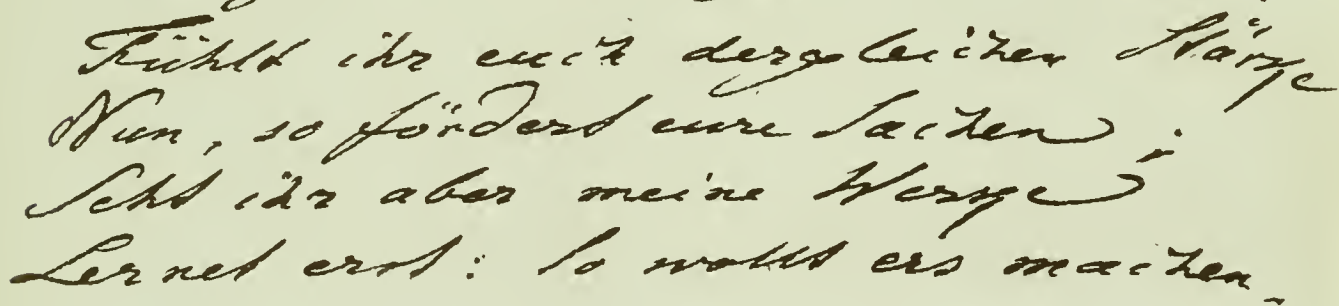 Fühlt ihr euch dergleichen Stärke
Nun, so fördert eure Sachen;
Seht ihr aber meine Werke
Lernet erst: so wollt ers machen.